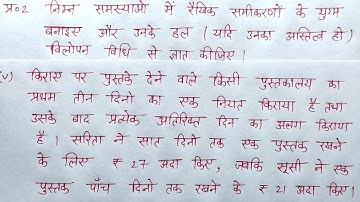 प्र०2 निम्न समस्याओं में रैखिक समीकरणों के युग्म
बनाइए और उनके हल (यदि उनका अस्तित्व हो)
विलोपन विधि से ज्ञात कीजिए।
(v) किराए पर पुस्तकें देने वाले किसी पुस्तकालय का
प्रथम तीन दिनों का एक नियत किराया है तथा
उसके बाद प्रत्येक अतिरिक्त दिन का अलग किराया
है। सरिता ने सात दिनों तक एक पुस्तक रखने
के लिए ₹ 27 अदा किए, जबकि सूसी ने एक
पुस्तक पाँच दिनों तक रखने के ₹ 21 अदा किए।